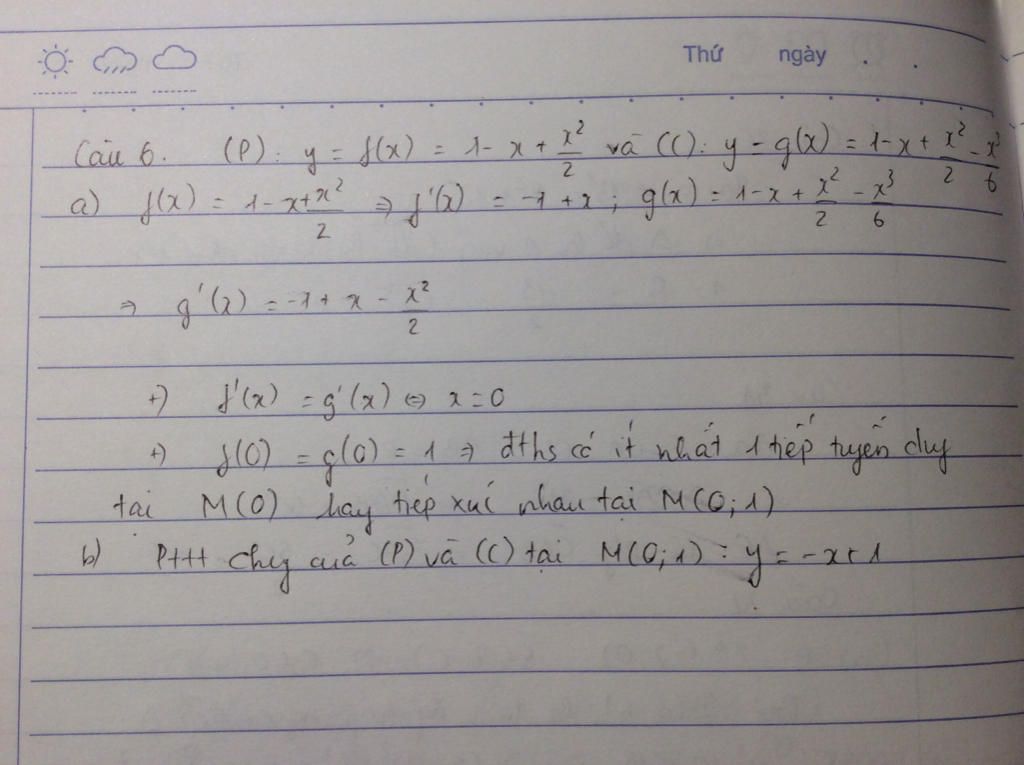 Thứ ngày . .
Câu 6. (P): y = f(x) = 1 - x + x²/2 và (C): y = g(x) = 1 - x + x²/2 - x³/6
a) f(x) = 1 - x + x²/2 ⇒ f'(x) = -1 + x ; g(x) = 1 - x + x²/2 - x³/6
⇒ g'(x) = -1 + x - x²/2
+) f'(x) = g'(x) ⇔ x = 0
+) f(0) = g(0) = 1 ⇒ đths có ít nhất 1 tiếp tuyến
tại M(0) hay tiếp xúc nhau tại M(0;1)
b) Pttt chg của (P) và (C) tại M(0;1) : y = -x + 1